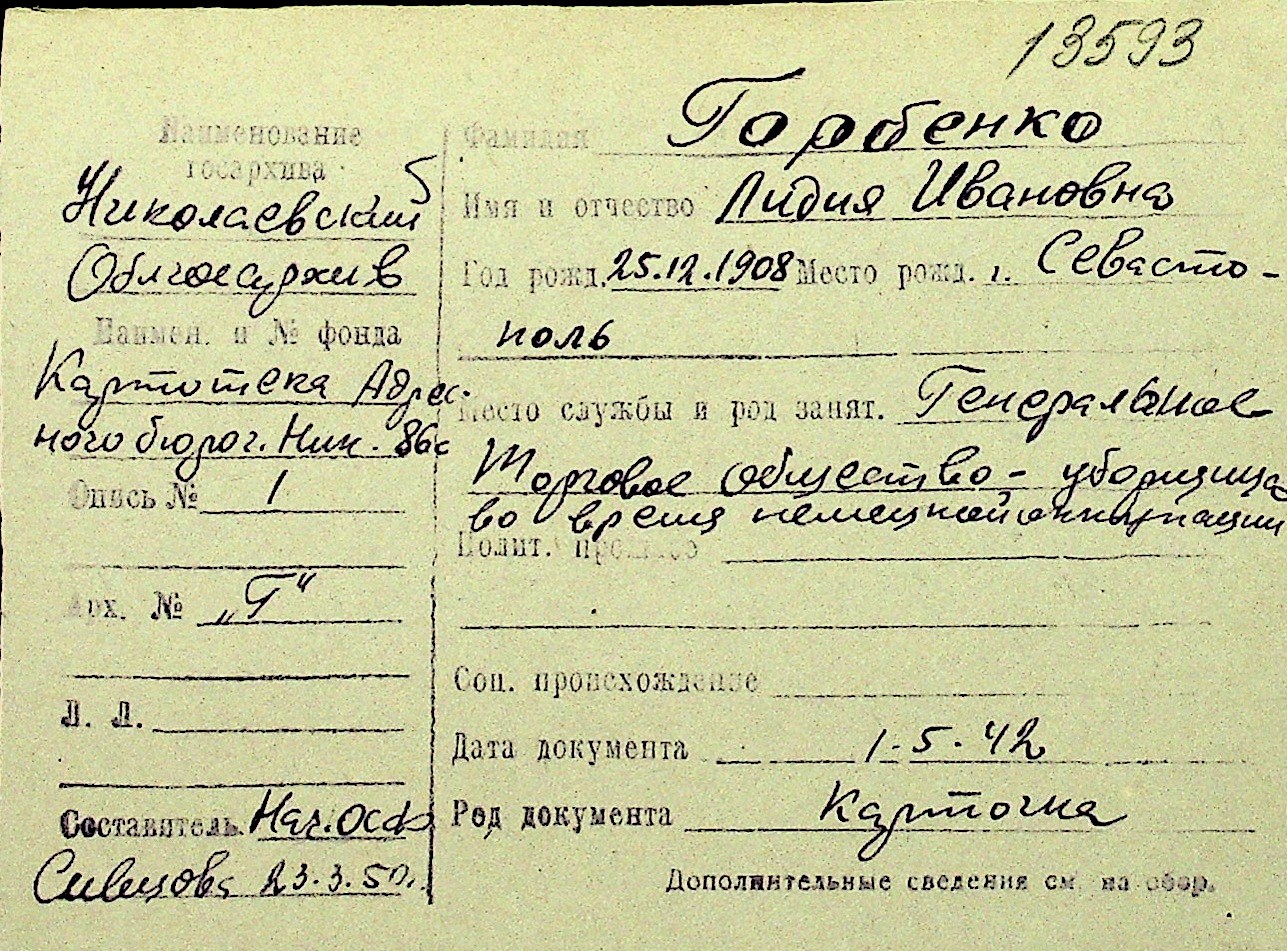 13593
Наименование
госархива
Николаевский
Облгосархив
Наимен. и № фонда
Картотека Адрес-
ного бюро г. Ник.
Опись № 1
Арх. № „Г“
Л. Л.
Составитель Нач. ОСФ
23.3.50
Фамилия Горбенко
Имя и отчество Лидия Ивановна
Год рожд. 25.12.1908 Место рожд. г. Севасто-
поль
Место службы и род занят. Генеральное
Торговое общество - уборщица
во время немецкой оккупации
Полит. прошлое
Соц. происхождение
Дата документа 1.5.42
Род документа Карточка
Дополнительные сведения см. на обор.